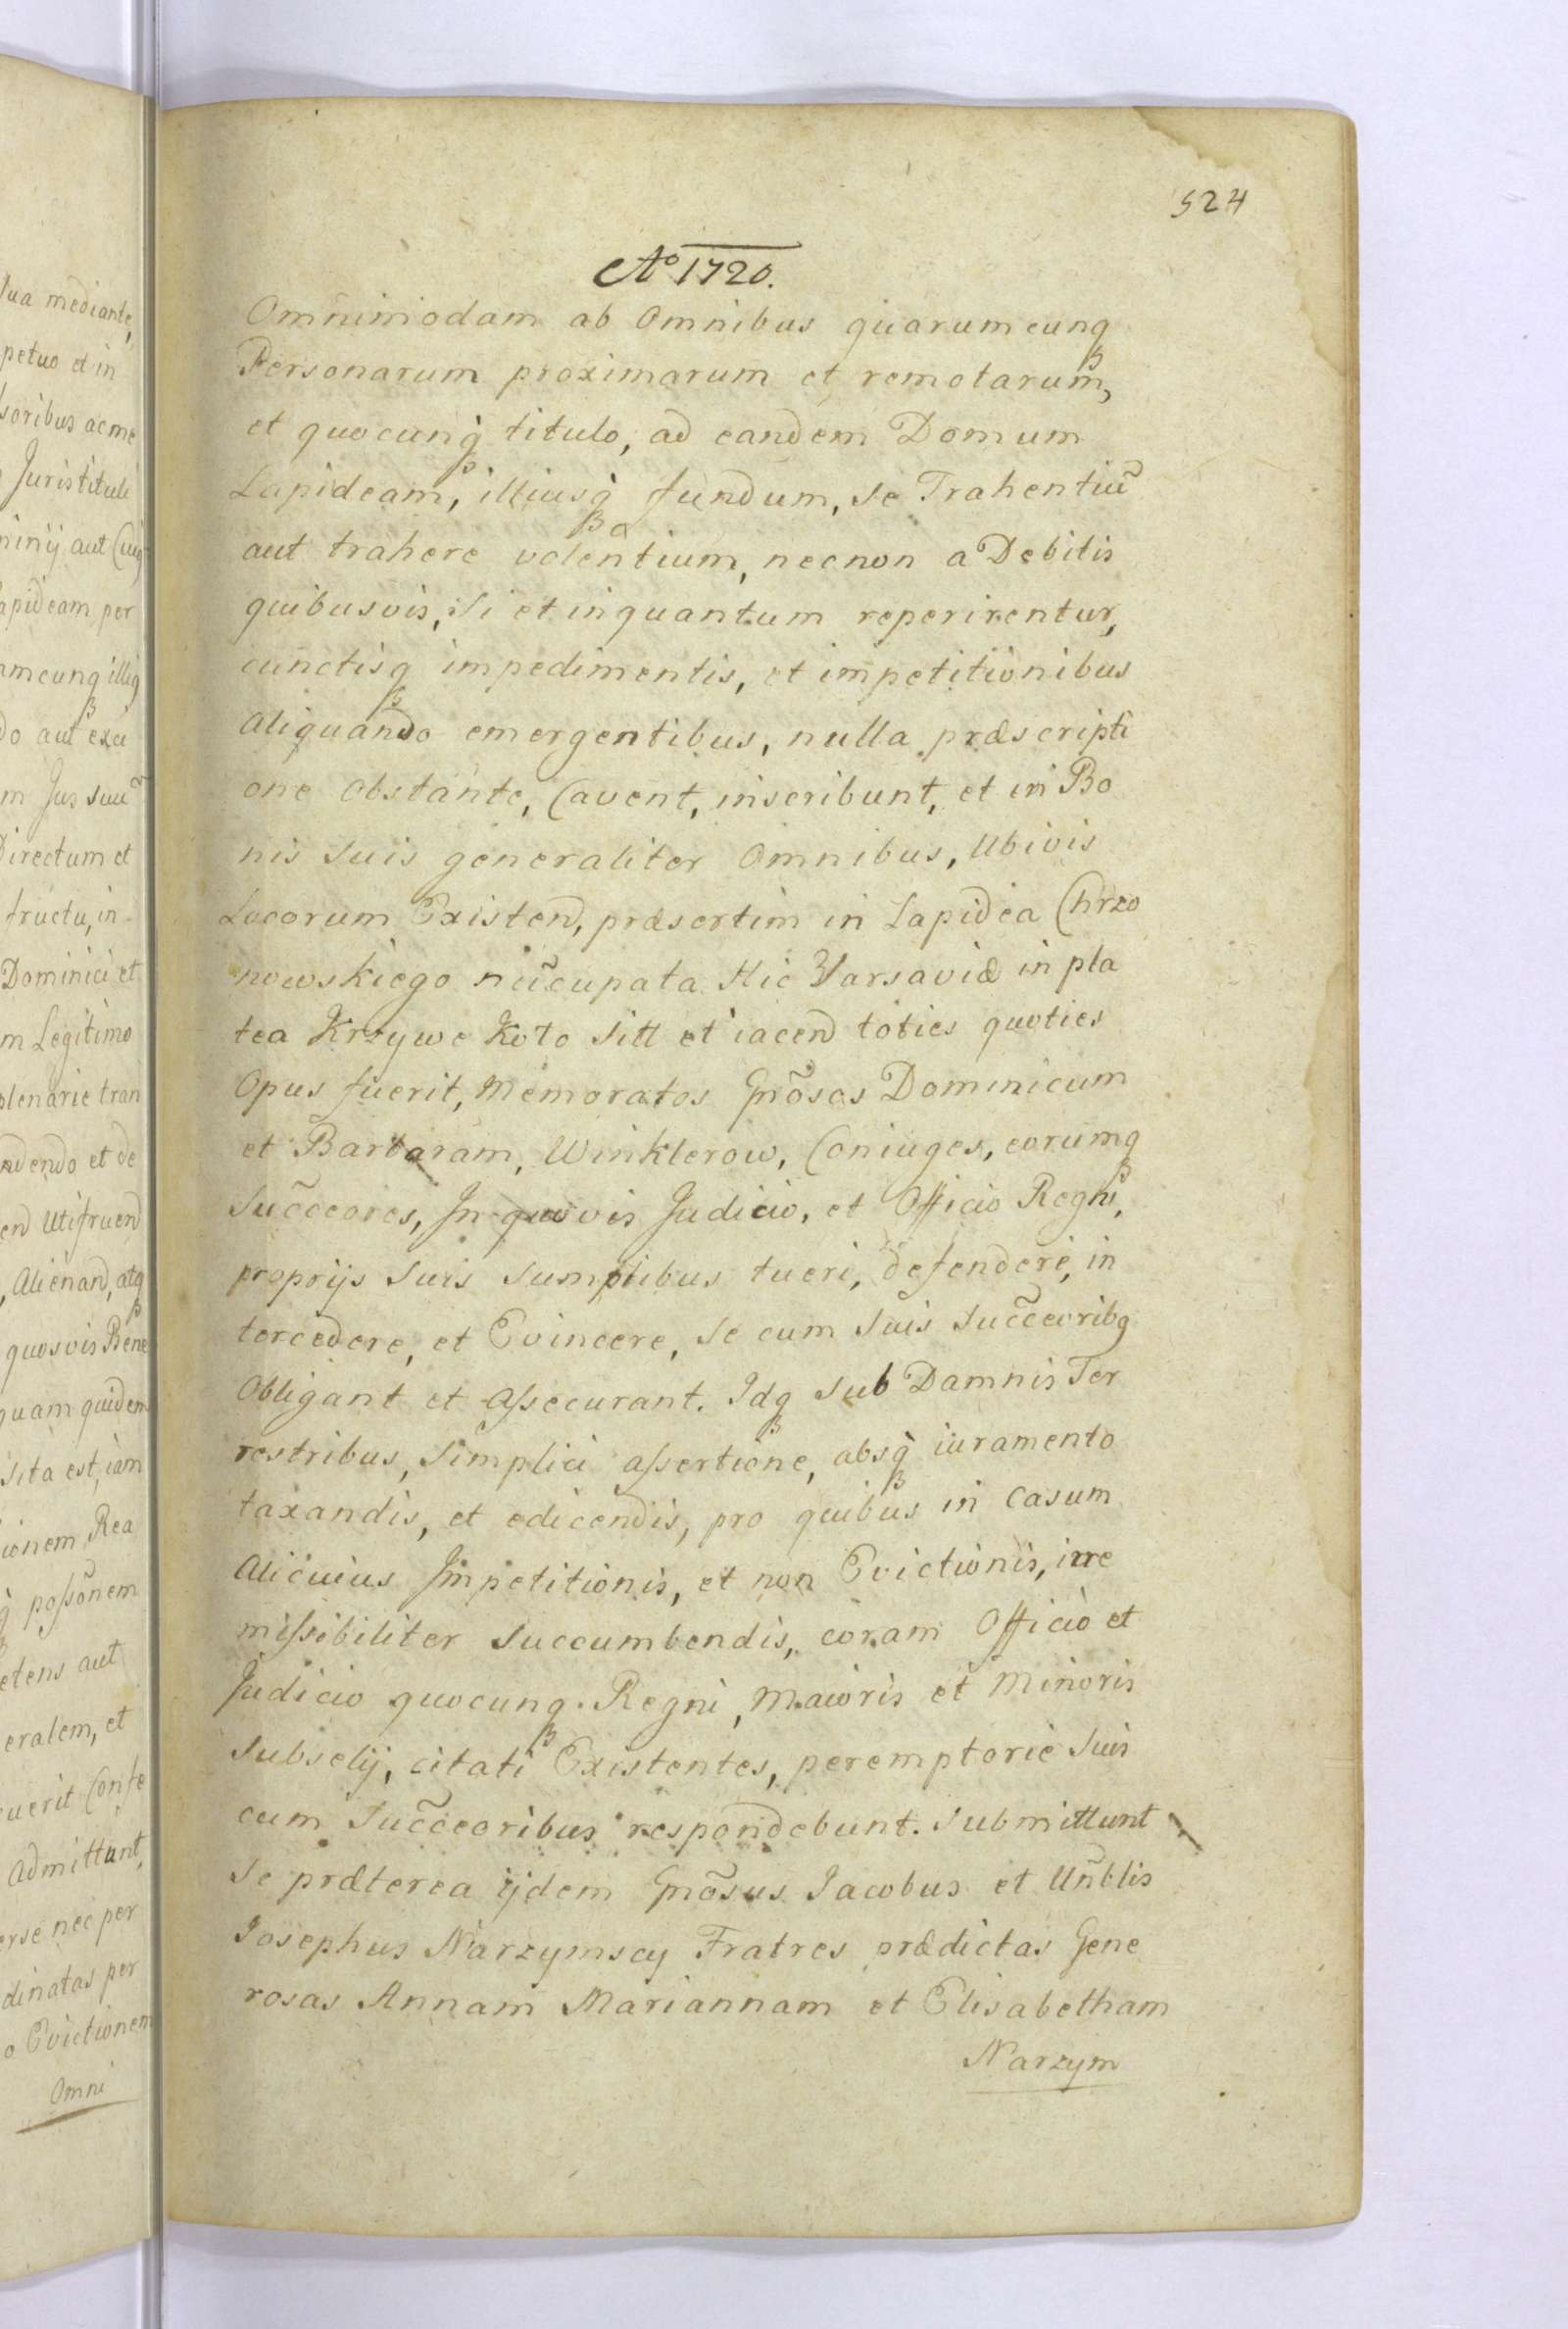 524
Aº 1720.
Omnimodam ab Omnibus quarumcunq
Personarum proximarum et remotarum,
et quocunq titulo, ad eandem Domum
Lapideam, illiusq fundum, se Trahentiũ
aut trahere volentium, necnon a Debitis
quibusvis, Si et inquantum reperirentur,
cunctisq impedimentis, et impetitionibus
aliquando emergentibus, nulla præscripti
one obstante, Cavent, inscribunt, et in Bo
nis suis generaliter Omnibus, Ubivis
Locorum Existend, præsertim in Lapidea Chrzo
nowskiego nũcupata Hic Varsaviæ in pla
tea Krzywe Koło Sitt et iacend toties quoties
Opus fuerit, Memoratos Gnõsos Dominicum
et Barbaram, Winklerow, Coniuges, eorumq
Succeores, In quovis Judicio, et Officio Regni,
proprijs Suis Sumptibus tueri, defendere, in
tercedere, et Evincere, Se cum Suis Succeoribq
Obligant et assecurant. Idq sub Damnis Ter
restribus, Simplici assertione, absq iuramento
taxandis, et edicendis, pro quibus in Casum
alicuius Impetitionis, et non Evictionis, irre
missibiliter Succumbendis, coram Officio et
Judicio quocunq Regni, Maioris et Minoris
Subselij, citati Existentes, peremptorie Suis
cum Succeoribus respondebunt. Submittunt
Se præterea ijdem Gnõsus Iacobus et Uñblis
Iosephus Narzymscy Fratres prædictas Gene
rosas Annam Mariannam et Elisabetham
Narzym
sua mediante,
petuo et in
soribus ac me
Juristituli
ninij aut Cuiq
apideam per
mcunq illiq
do aut exci
m Jus suũ
Directum et
fructu, in
Dominici et
m Legitimo
plenarie tran
ndendo et de
end Utifruend
, Alienand, atq
quosvis Bene
quam quidem
sita est, iam
ionem Rea
q possõnem
etens aut
eralem, et
uerit Confe
admittunt,
erse nec per
dinatas per
o Evictionem
Omni